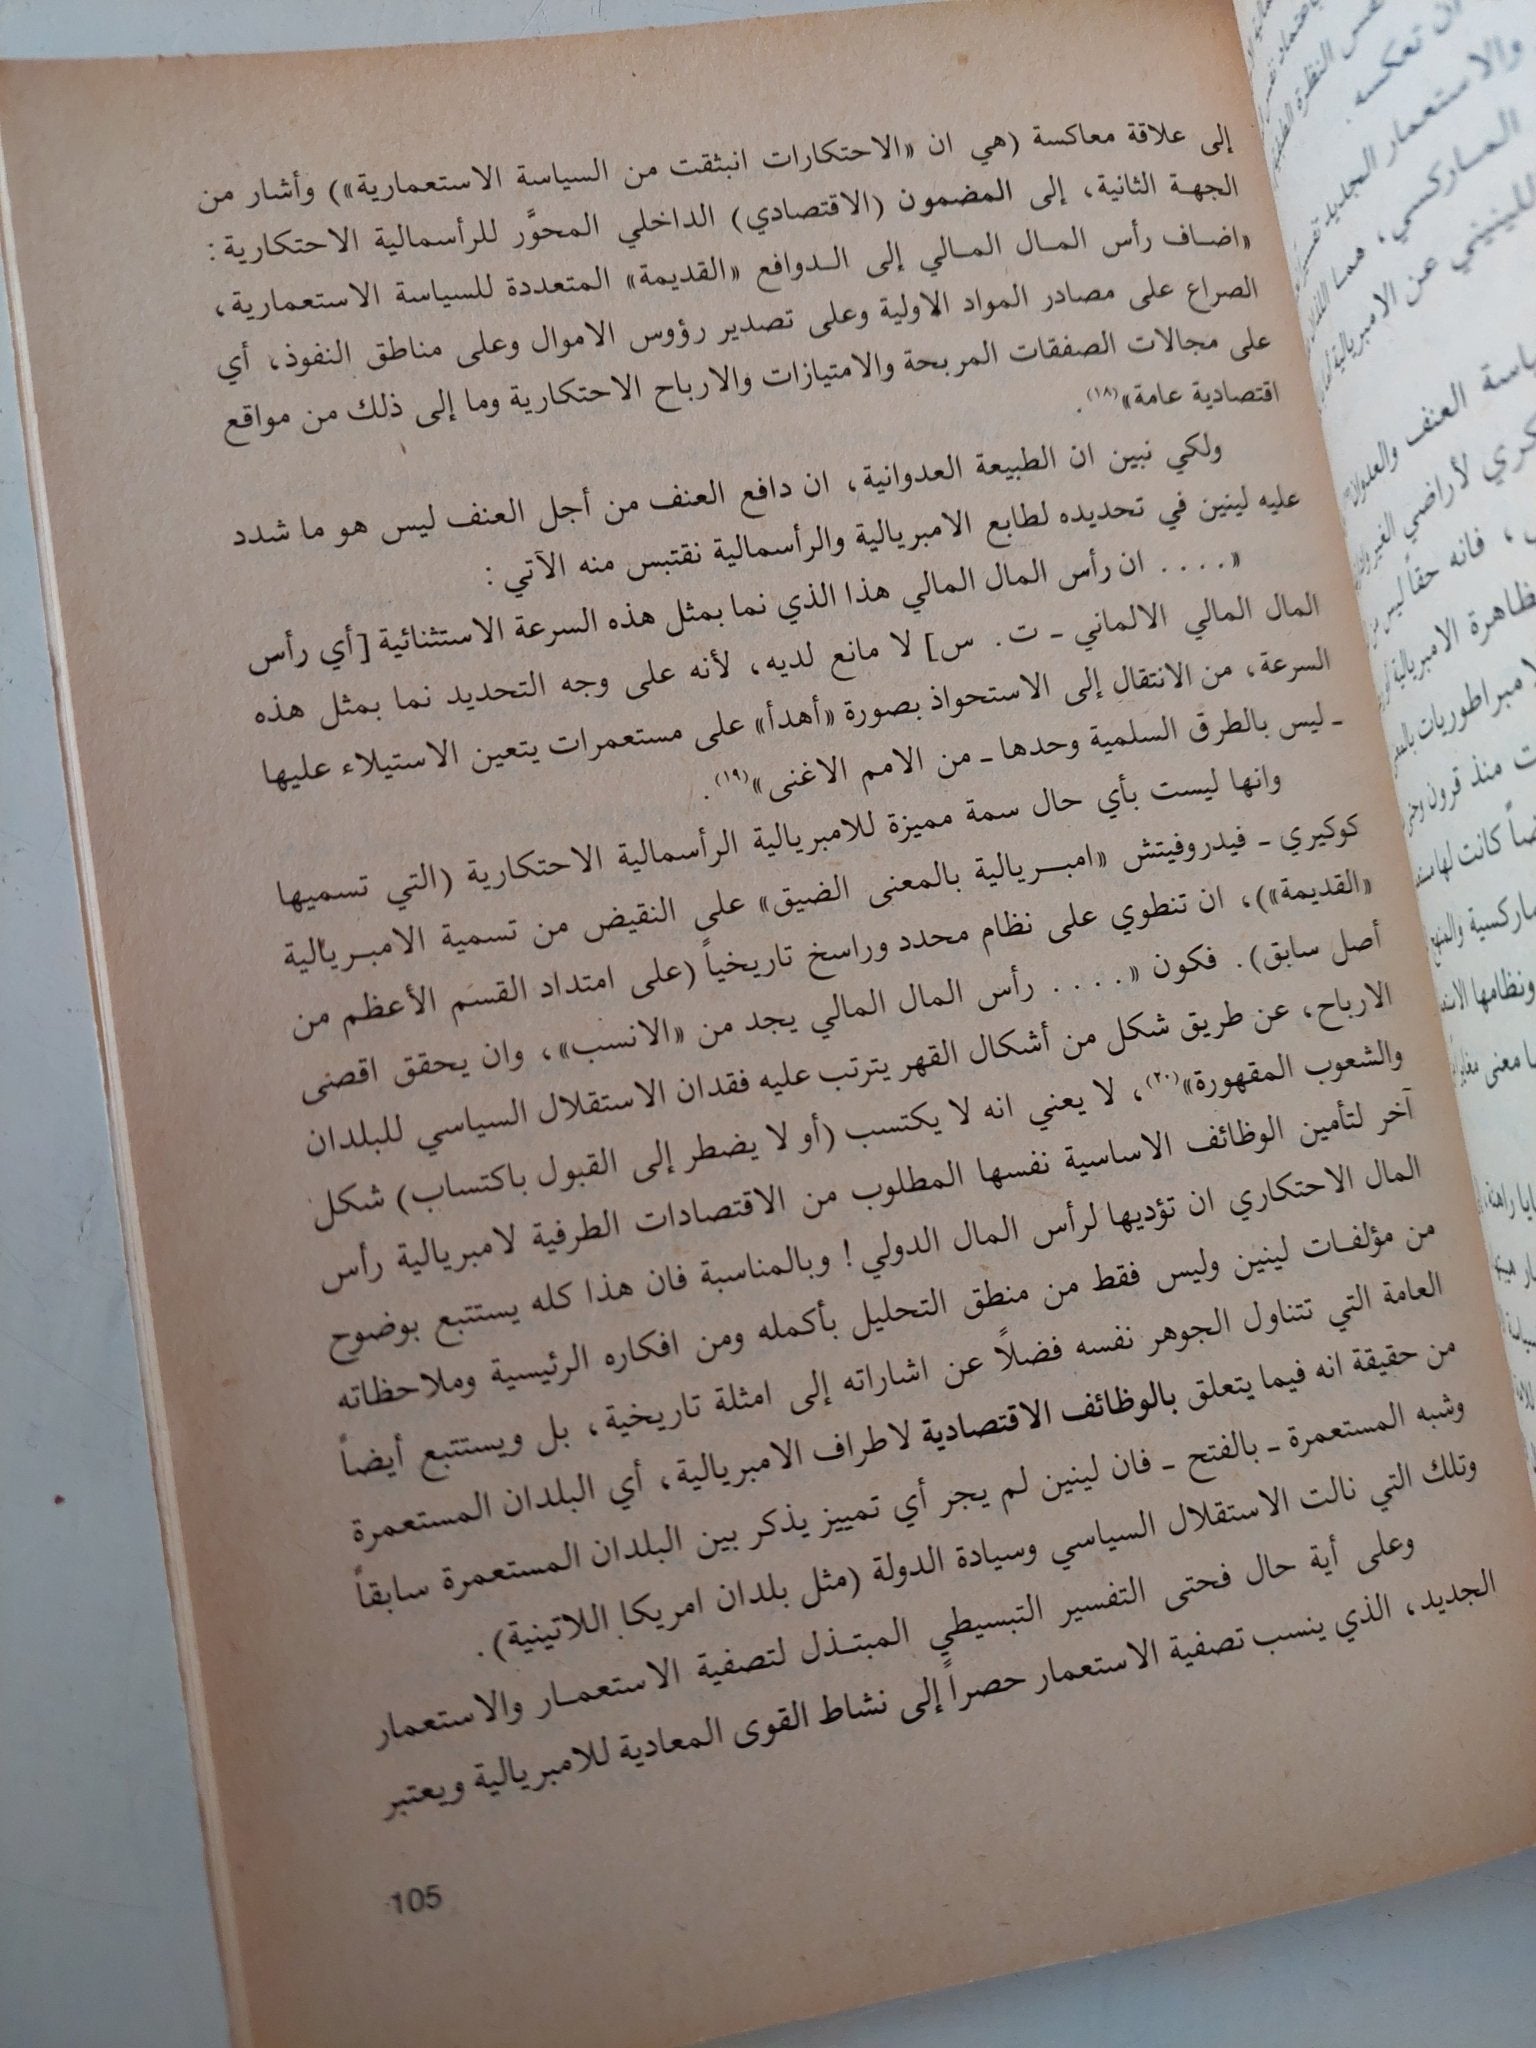 إلى علاقة معاكسة (هي ان «الاحتكارات انبثقت من السياسة الاستعمارية») وأشار من
الجهة الثانية، إلى المضمون (الاقتصادي) الداخلي المحوَّر للرأسمالية الاحتكارية :
«اضاف رأس المال المالي إلى الدوافع «القديمة» المتعددة للسياسة الاستعمارية،
الصراع على مصادر المواد الاولية وعلى تصدير رؤوس الاموال وعلى مناطق النفوذ، أي
على مجالات الصفقات المربحة والامتيازات والارباح الاحتكارية وما إلى ذلك من مواقع
اقتصادية عامة»(١٨).
ولكي نبين ان الطبيعة العدوانية، ان دافع العنف من أجل العنف ليس هو ما شدد
عليه لينين في تحديده لطابع الامبريالية والرأسمالية نقتبس منه الآتي :
«.... ان رأس المال المالي هذا الذي نما بمثل هذه السرعة الاستثنائية [أي رأس
المال المالي الالماني ـ ت. س] لا مانع لديه، لأنه على وجه التحديد نما بمثل هذه
السرعة، من الانتقال إلى الاستحواذ بصورة «أهدأ» على مستعمرات يتعين الاستيلاء عليها
ـ ليس بالطرق السلمية وحدها ـ من الامم الاغنى»(١٩).
وانها ليست بأي حال سمة مميزة للامبريالية الرأسمالية الاحتكارية (التي تسميها
كوكيري ـ فيدروفيتش «امبريالية بالمعنى الضيق» على النقيض من تسمية الامبريالية
«القديمة»)، ان تنطوي على نظام محدد وراسخ تاريخياً (على امتداد القسم الأعظم من
أصل سابق). فكون «.... رأس المال المالي يجد من «الانسب»، وان يحقق اقصى
الارباح، عن طريق شكل من أشكال القهر يترتب عليه فقدان الاستقلال السياسي للبلدان
والشعوب المقهورة»(٢٠)، لا يعني انه لا يكتسب (أو لا يضطر إلى القبول باكتساب) شكل
آخر لتأمين الوظائف الاساسية نفسها المطلوب من الاقتصادات الطرفية لامبريالية رأس
المال الاحتكاري ان تؤديها لرأس المال الدولي! وبالمناسبة فان هذا كله يستتبع بوضوح
من مؤلفات لينين وليس فقط من منطق التحليل بأكمله ومن افكاره الرئيسية وملاحظاته
العامة التي تتناول الجوهر نفسه فضلاً عن اشاراته إلى امثلة تاريخية، بل ويستتبع أيضاً
من حقيقة انه فيما يتعلق بالوظائف الاقتصادية لاطراف الامبريالية، أي البلدان المستعمرة
وشبه المستعمرة ـ بالفتح ـ فان لينين لم يجر أي تمييز يذكر بين البلدان المستعمرة سابقاً
وتلك التي نالت الاستقلال السياسي وسيادة الدولة (مثل بلدان امريكا اللاتينية).
وعلى أية حال فحتى التفسير التبسيطي المبتذل لتصفية الاستعمار والاستعمار
الجديد، الذي ينسب تصفية الاستعمار حصراً إلى نشاط القوى المعادية للامبريالية ويعتبر
105